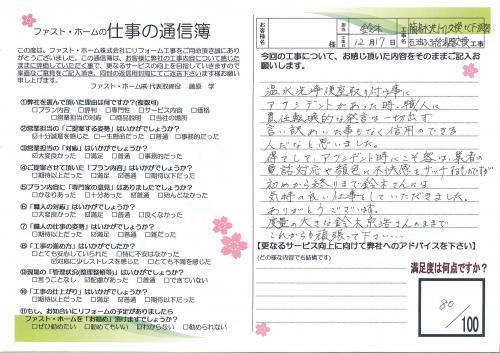 ファスト・ホームの仕事の通信簿
この度は、ファスト・ホーム株式会社にリフォーム工事をご用命頂き誠にあり
がとうございました。この通信簿は、お客様に弊社の工事内容について感じた
ままに評価していただく事で、更なるサービスの向上を目指していきますので
率直なご意見をご記入頂き、同封の返信用封筒にてご返送下さいます様お願い
申し上げます。
ファスト・ホーム㈱ 代表取締役 藤原 学
①弊社を選んで頂いた理由は何ですか？(複数可)
□プラン内容 □評判 □専門性 □サービス内容 □価格
□会社の規模 □自宅から近い □その他
②営業担当の「ご提案する姿勢」はいかがでしたか？
□十分誠意を感じた □一生懸命だった □普通 □事務的だった
③営業担当の「対応」はいかがでしたか？
☑大変良かった □満足 □普通 □事務的だった
④ご提案させて頂いた「プラン内容」はいかがでしたか？
□期待以上だった ☑満足 □普通 □期待以下だった
⑤プラン内容に「専門家の意見」はありましたでしょうか？
□かなりあった □十分あった ☑普通 □殆んどなかった
⑥「職人の対応」はいかがでしたでしょうか？
□大変良かった ☑満足 □普通 □良くなかった
⑦「職人の仕事の姿勢」はいかがでしたか？
□期待以上だった ☑満足 □普通 □期待以下だった
⑧「工事の進め方」はいかがでしたか？
□とても安心していられた □特に不安はなかった
☑対処に少しストレスを感じた □とても不満を感じた
⑨現場の「管理状況(整理整頓等)」はいかがでしたか？
□言うことなし □配慮があった ☑普通 □できていない
⑩「工事の仕上がり」はいかがでしたか？
□期待以上だった □満足 ☑普通 □期待以下だった
⑪もし、お知合いにリフォームの予定がありましたら
ファスト・ホームを「お勧め」頂けますでしょうか？
□ぜひ勧めたい □勧めてもいい ☑わからない □勧められない
お客様名
担当 鈴木
12月17日
工事
今回の工事について、お感じ頂いた内容をそのままご記入お
願いします。
温水洗浄便座取り付け事に
アクシデントがあった時、職人に
責任転換的な発言は一切出ず
言い訳めいた事もなく信用のできる
人だなと思いました。
得てして、アクシデント時にこそ客は、業者の
電話対応や顔色に不快感をキャッチするものですが
初めから終りまで鈴木さんには
気持の良い仕事をしていただきました。
ありがとうございます。
度量の大きな鈴木さんのままで
これからも頑張って下さい…
【更なるサービス向上に向けて弊社へのアドバイスを下さい】
(どの様な内容でも結構です)
満足度は何点ですか？
80
/100